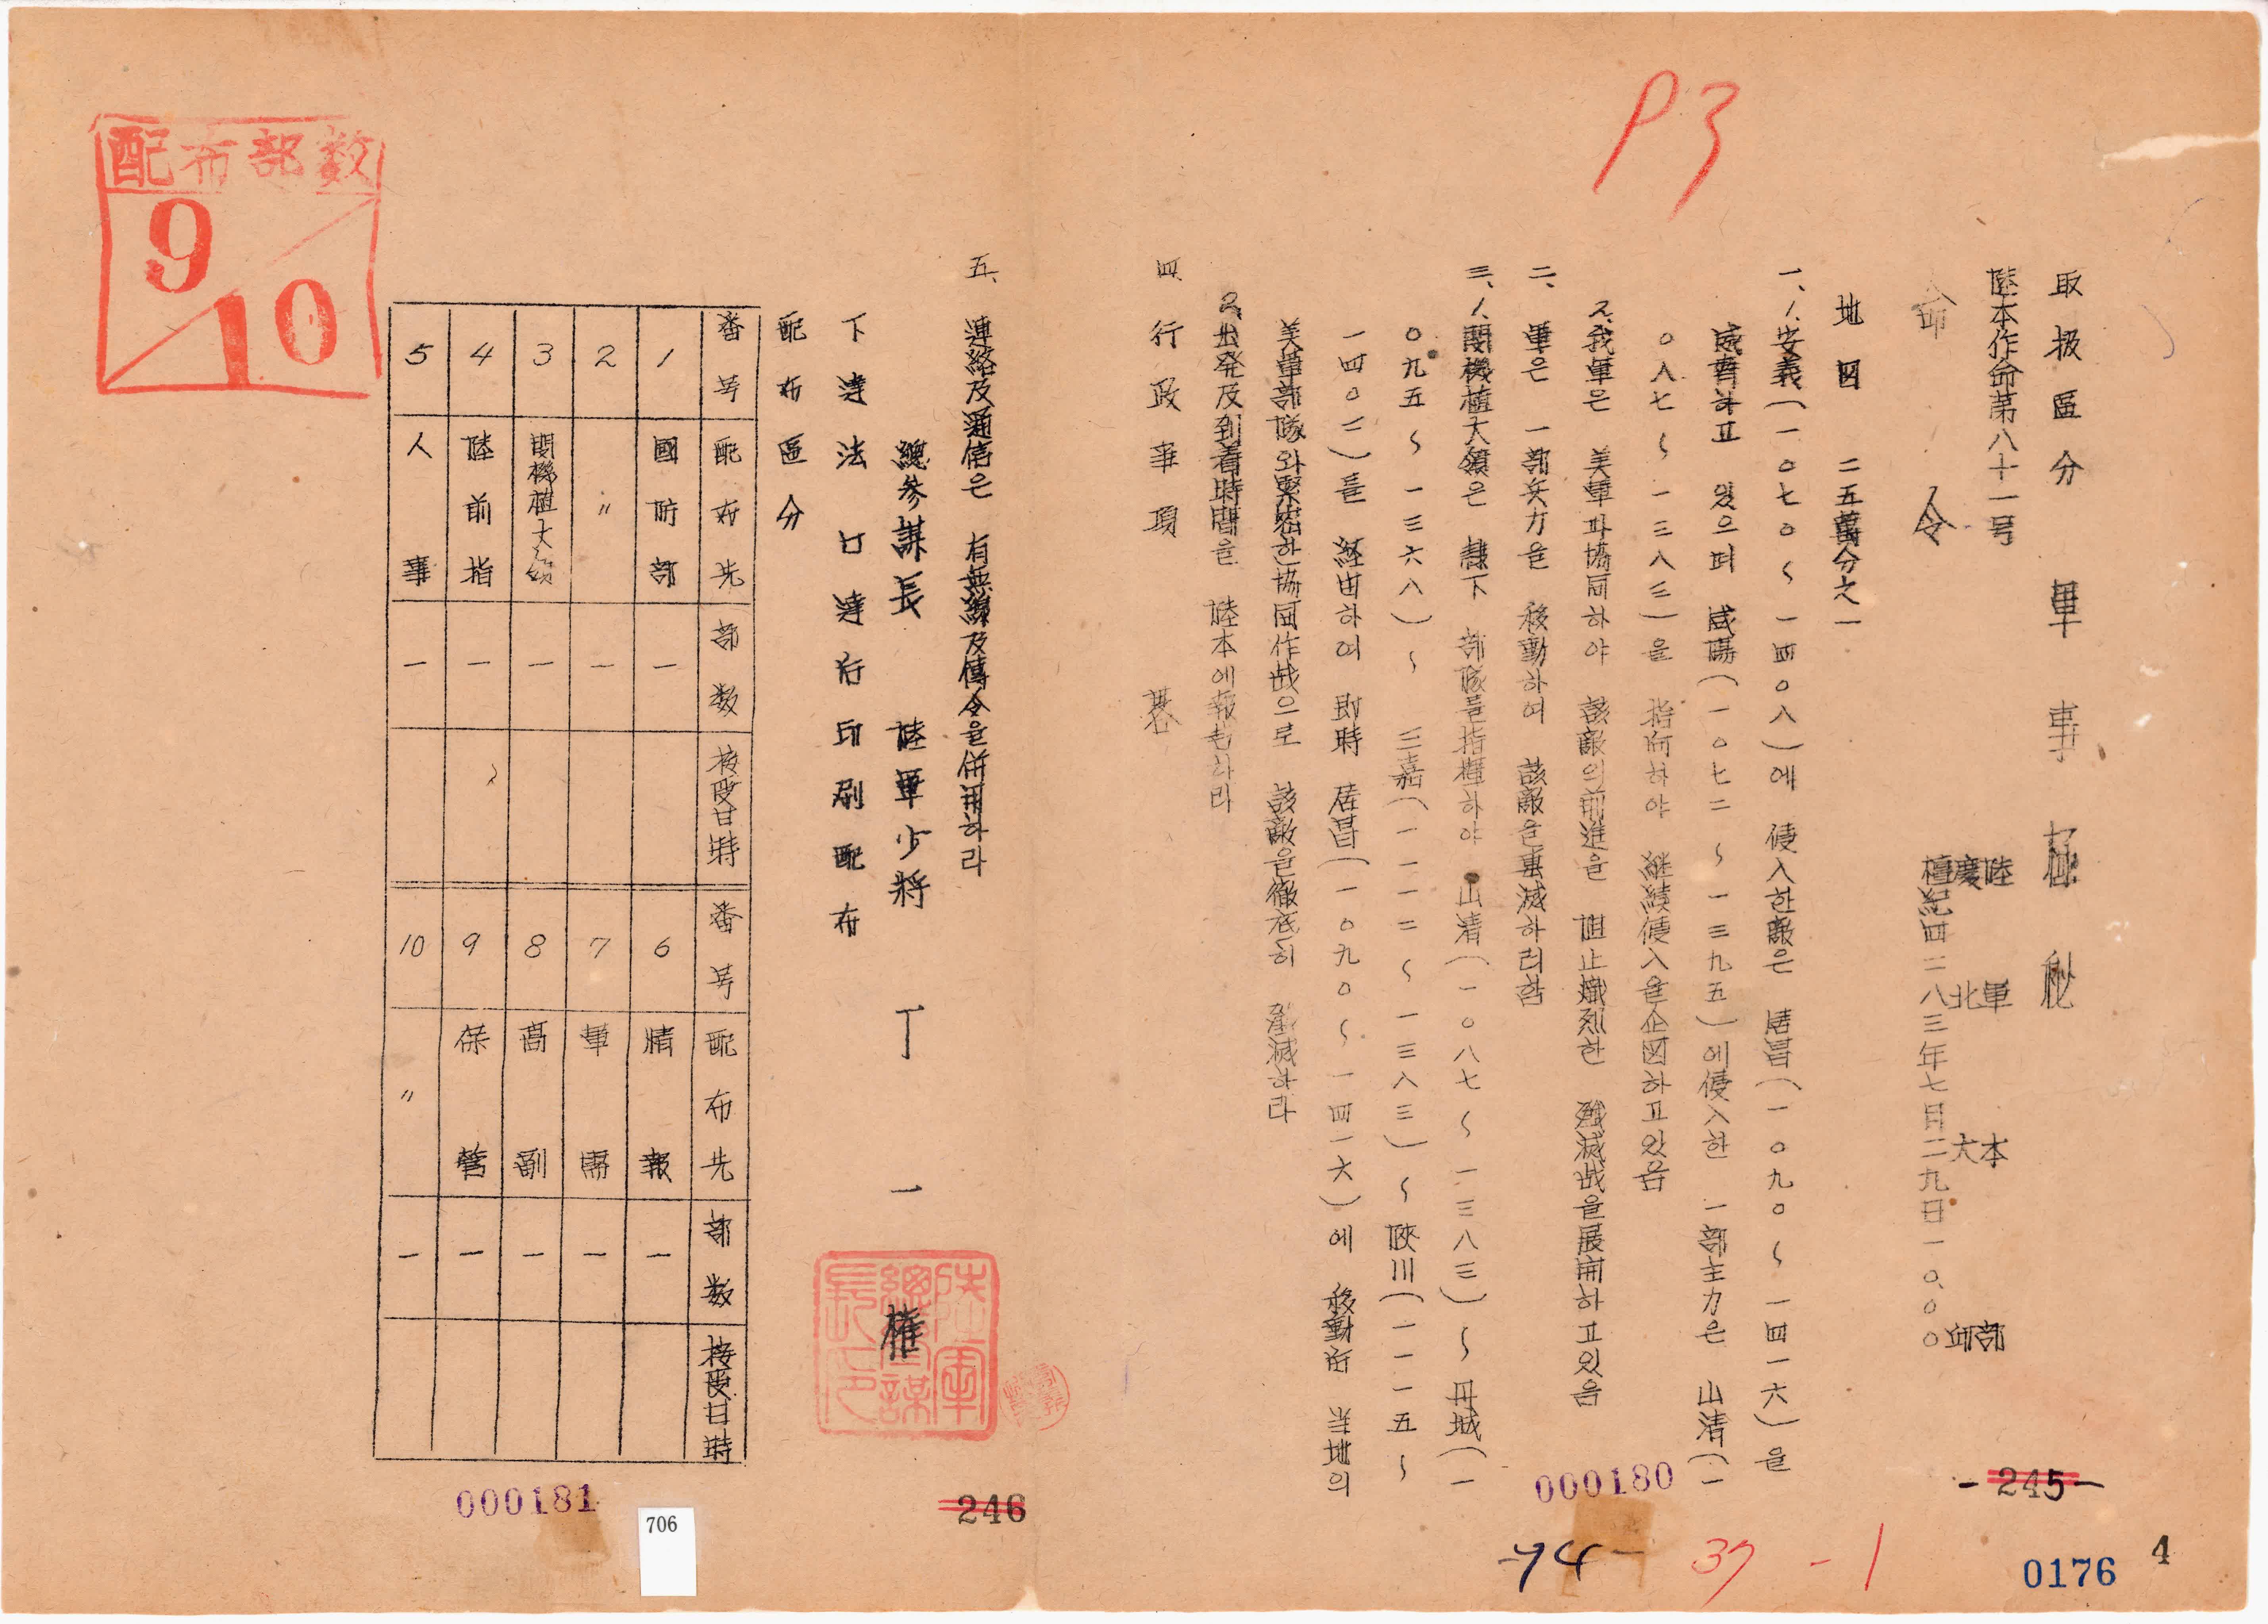 P3
取扱區分 軍事極秘
陸本作命第八十一号
陸軍本部
慶北大邱
檀紀四二八三年七月二九日一〇.〇〇
命令
地図 二五萬分之一
一、1.安義(一〇七〇~一四〇八)에 侵入한敵은 居昌(一〇九〇~一四一六)을
威脅하고 있으며 咸陽(一〇七二~一三九五)에侵入한 一部主力은 山清(一
〇八七~一三八三)을 指向하야 継続侵入을企図하고있음
2.我軍은 美軍과協同하야 該敵의前進을 阻止熾烈한 殲滅战을展開하고있음
二、軍은 一部兵力을 移動하여 該敵을車滅하려함
三、1.閔機植大領은 隷下 部隊를指揮하야 山清(一〇八七~一三八三)~丹城(一
〇九五~一三六八)~ 三嘉(一一一二~一三八三)~陜川(一一一五~
一四〇二)를 経由하여 即時 居昌(一〇九〇~一四一六)에 移動后 当地의
美軍部隊와緊密한協同作战으로 該敵을徹底히 殲滅하라
2.出発及到着時間을 陸本에報告하라
四、行政事項 畧
五、連絡及通信은 有無線及傳令을併用하라
總參謀長 陸軍少將 丁一權
陸軍總參謀長印
下達法 口達后印刷配布
配布區分
番号 配布先 部数 接受日時 番号 配布先 部数 接受日時
1 國防部 一 6 情報 一
2 〃 一 7 軍需 一
3 閔機植大領 一 8 高副 一
4 陸前指 一 9 保管 一
5 人事 一 10 〃 一
配布部数
9/10
000181
706
246
000180
-245-
-74-
37-1
0176
4